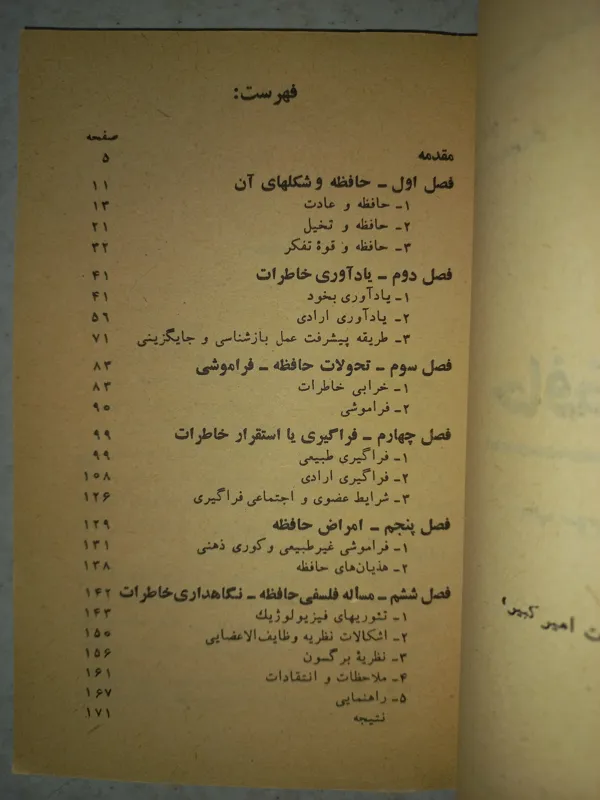 فهرست:
صفحه
مقدمه ۵
فصل اول ـ حافظه و شکلهای آن ۱۱
۱ـ حافظه و عادت ۱۳
۲ـ حافظه و تخیل ۲۱
۳ـ حافظه و قوهٔ تفکر ۳۲
فصل دوم ـ یادآوری خاطرات ۴۱
۱ـ یادآوری بخود ۴۱
۲ـ یادآوری ارادی ۵۶
۳ـ طریقه پیشرفت عمل بازشناسی و جایگزینی ۷۱
فصل سوم ـ تحولات حافظه ـ فراموشی ۸۳
۱ـ خرابی خاطرات ۸۳
۲ـ فراموشی ۹۰
فصل چهارم ـ فراگیری یا استقرار خاطرات ۹۹
۱ـ فراگیری طبیعی ۹۹
۲ـ فراگیری ارادی ۱۰۸
۳ـ شرایط عضوی و اجتماعی فراگیری ۱۲۶
فصل پنجم ـ امراض حافظه ۱۲۹
۱ـ فراموشی غیرطبیعی و کوری ذهنی ۱۳۱
۲ـ هذیان‌های حافظه ۱۳۸
فصل ششم ـ مسأله فلسفی حافظه ـ نگاهداری خاطرات ۱۴۲
۱ـ تئوریهای فیزیولوژیك ۱۴۳
۲ـ اشکالات نظریه وظایف‌الاعضایی ۱۵۰
۳ـ نظریهٔ برگسون ۱۵۶
۴ـ ملاحظات و انتقادات ۱۶۱
۵ـ راهنمایی ۱۶۷
نتیجه ۱۷۱